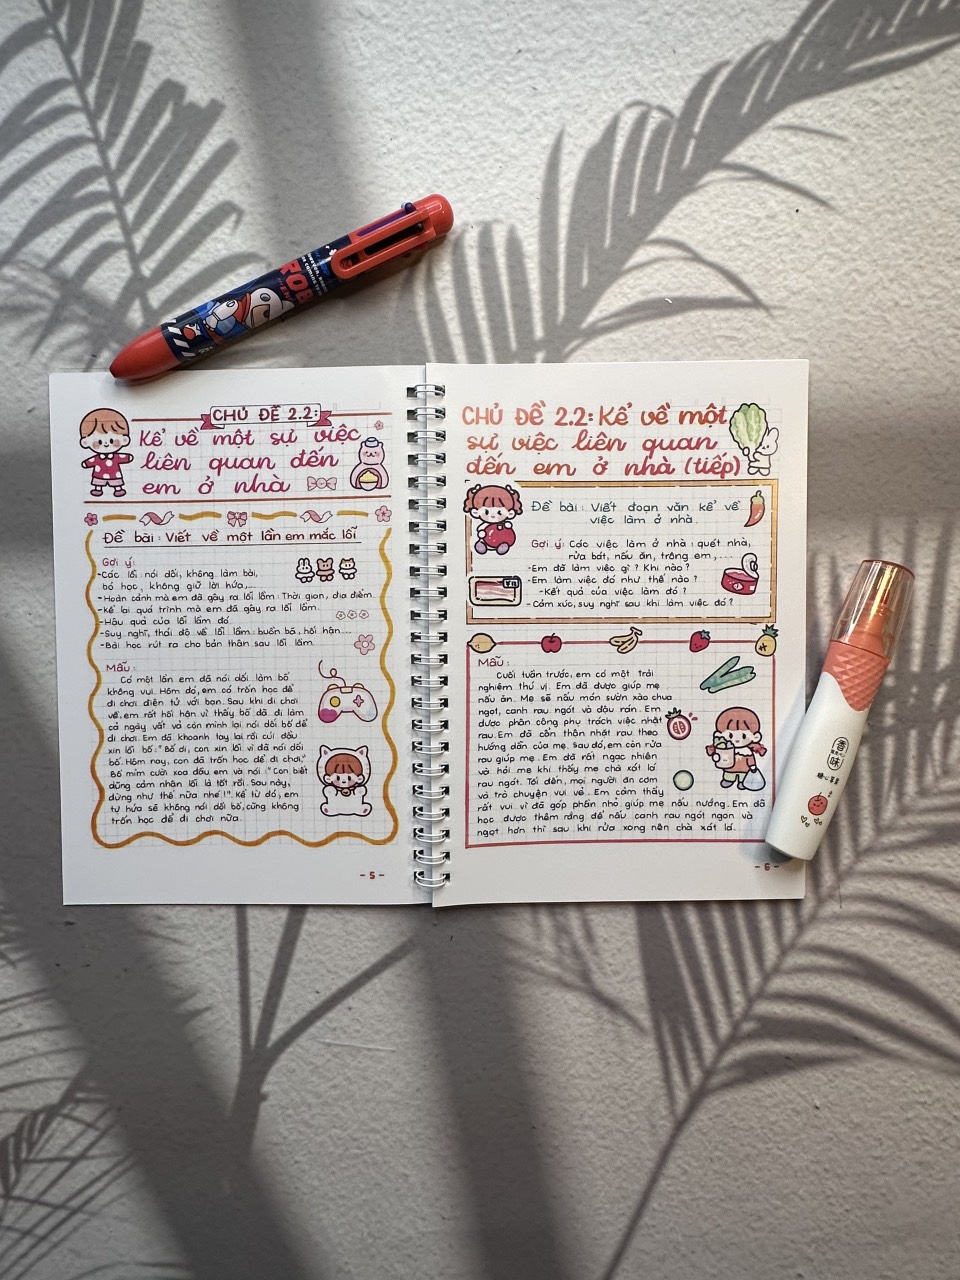 CHỦ ĐỀ 2.2:
Kể về một sự việc
liên quan đến
em ở nhà
Đề bài: Viết về một lần em mắc lỗi
Gợi ý:
-Các lỗi nói dối, không làm bài,
bỏ học, không giữ lời hứa,...
-Hoàn cảnh mà em đã gây ra lỗi lầm: Thời gian, địa điểm.
-Kể lại quá trình mà em đã gây ra lỗi lầm.
-Hậu quả của lỗi lầm đó
-Suy nghĩ, thái độ về lỗi lầm: buồn bã, hối hận...
-Bài học rút ra cho bản thân sau lỗi lầm.
Mẫu:
Có một lần em đã nói dối làm bố
không vui. Hôm đó, em có trốn học để
đi chơi điện tử với bạn. Sau khi đi chơi
về, em rất hối hận vì thấy bố đã đi làm
cả ngày vất vả còn mình lại nói dối bố để
đi chơi. Em đã khoanh tay lại rồi cúi đầu
xin lỗi bố: "Bố ơi, con xin lỗi vì đã nói dối
bố. Hôm nay, con đã trốn học để đi chơi."
Bố mỉm cười xoa đầu em và nói: "Con biết
dũng cảm nhận lỗi là tốt rồi. Sau này,
đừng như thế nữa nhé!". Kể từ đó, em
tự hứa sẽ không nói dối bố, cũng không
trốn học để đi chơi nữa.
- 5 -
CHỦ ĐỀ 2.2: Kể về một
sự việc liên quan
đến em ở nhà (tiếp)
Đề bài: Viết đoạn văn kể về
việc làm ở nhà.
Gợi ý: Các việc làm ở nhà: quét nhà,
rửa bát, nấu ăn, trông em,...
-Em đã làm việc gì? Khi nào?
-Em làm việc đó như thế nào?
-Kết quả của việc làm đó?
-Cảm xúc, suy nghĩ sau khi làm việc đó?
Mẫu:
Cuối tuần trước, em có một trải
nghiệm thú vị. Em đã được giúp mẹ
nấu ăn. Mẹ sẽ nấu món sườn xào chua
ngọt, canh rau ngót và đậu rán. Em
được phân công phụ trách việc nhặt
rau. Em đã cẩn thận nhặt rau theo
hướng dẫn của mẹ. Sau đó, em còn rửa
rau giúp mẹ. Em đã rất ngạc nhiên
và hỏi mẹ khi thấy mẹ chà xát lá
rau ngót. Tối đến, mọi người ăn cơm
và trò chuyện vui vẻ. Em cảm thấy
rất vui vì đã góp phần nhỏ giúp mẹ nấu nướng. Em đã
học được thêm rằng để nấu canh rau ngót ngon và
ngọt hơn thì sau khi rửa xong nên chà xát lá.
- 6 -
香
味